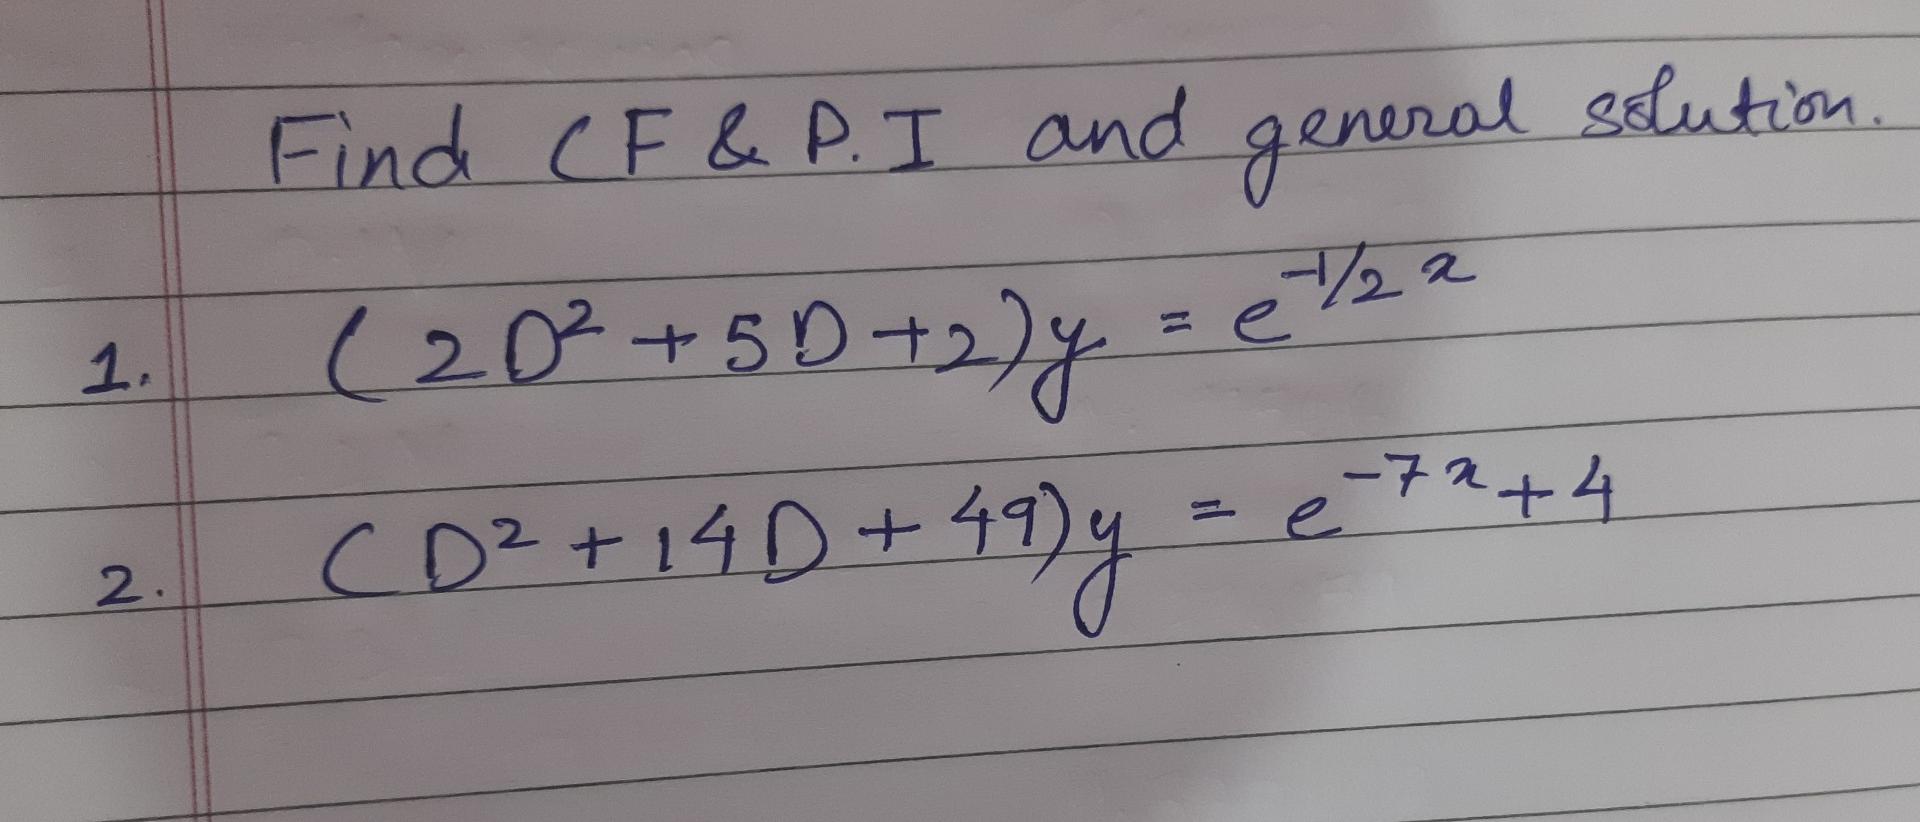 Find CF & P.I and general solution.
1. (2D² + 5D + 2)y = e^{-1/2 x}
2. (D² + 14D + 49)y = e^{-7x} + 4